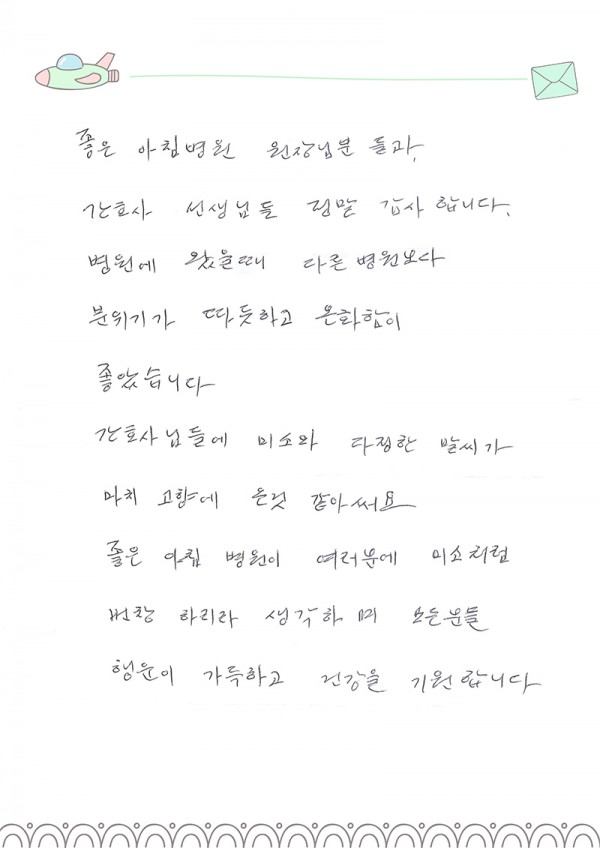 좋은 아침병원 원장님분 들과,
간호사 선생님들 정말 감사 합니다.
병원에 왔을때 다른 병원보다
분위기가 따듯하고 온화함이
좋았습니다
간호사님들에 미소와 다정한 말씨가
마치 고향에 온것 같아써요
좋은 아침 병원이 여러분에 미소처럼
번창 하리라 생각하며 모든분들
행운이 가득하고 건강을 기원합니다